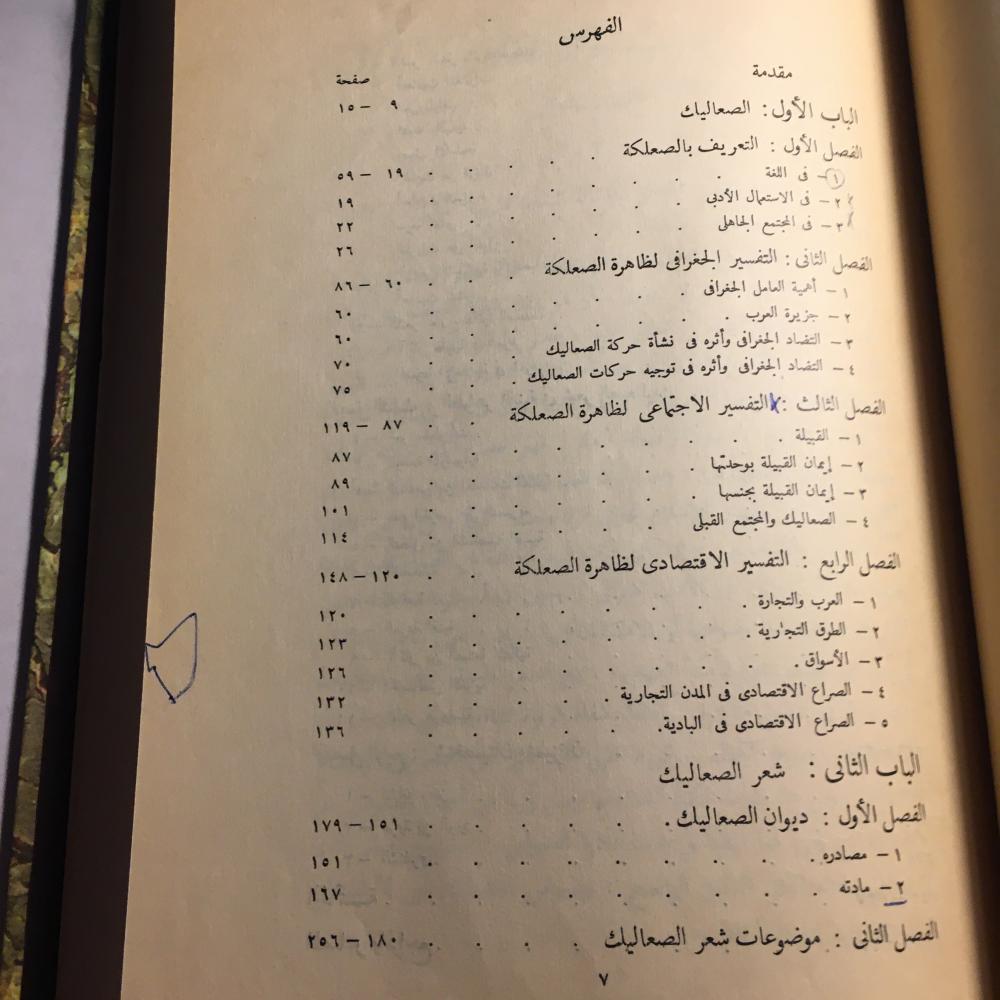 الفهرس
صفحة
مقدمة ٩ – ١٥
الباب الأول : الصعاليك
الفصل الأول : التعريف بالصعلكة . . . ١٩ – ٥٩
١ – فى اللغة . . . . . . ١٩
٢ – فى الاستعمال الأدبى . . . . . ٢٢
٣ – فى المجتمع الجاهلى . . . . . ٢٦
الفصل الثانى : التفسير الجغرافى لظاهرة الصعلكة . . ٦٠ – ٨٦
١ – أهمية العامل الجغرافى . . . . . ٦٠
٢ – جزيرة العرب . . . . . . ٦٠
٣ – التضاد الجغرافى وأثره فى نشأة حركة الصعاليك . . ٧٠
٤ – التضاد الجغرافى وأثره فى توجيه حركات الصعاليك . . ٧٥
الفصل الثالث : التفسير الاجتماعى لظاهرة الصعلكة . . ٨٧ – ١١٩
١ – القبيلة . . . . . . . ٨٧
٢ – إيمان القبيلة بوحدتها . . . . . ٨٩
٣ – إيمان القبيلة بجنسها . . . . . ١٠١
٤ – الصعاليك والمجتمع القبلى . . . . . ١١٤
الفصل الرابع : التفسير الاقتصادى لظاهرة الصعلكة . . ١٢٠ – ١٤٨
١ – العرب والتجارة . . . . . . . ١٢٠
٢ – الطرق التجارية . . . . . . . ١٢٣
٣ – الأسواق . . . . . . . . ١٢٦
٤ – الصراع الاقتصادى فى المدن التجارية . . . . ١٣٢
٥ – الصراع الاقتصادى فى البادية . . . . . ١٣٦
الباب الثانى : شعر الصعاليك
الفصل الأول : ديوان الصعاليك . . . . . . ١٥١ – ١٧٩
١ – مصادره . . . . . . . . . ١٥١
٢ – مادته . . . . . . . . . ١٦٧
الفصل الثانى : موضوعات شعر الصعاليك . . . . ١٨٠ – ٢٥٦
٧